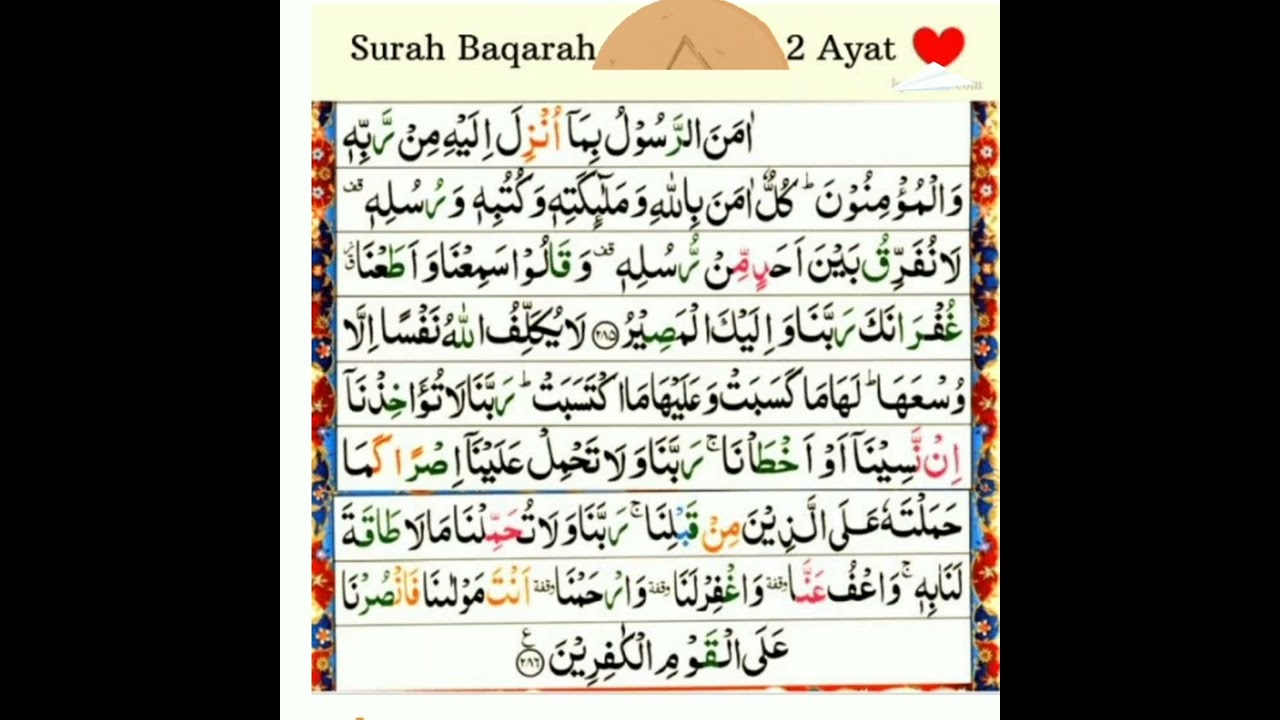 Surah Baqarah 2 Ayat
اٰمَنَ الرَّسُوْلُ بِمَاۤ اُنْزِلَ اِلَيْهِ مِنْ رَّبِّهٖ
وَالْمُؤْمِنُوْنَ ؕ كُلٌّ اٰمَنَ بِاللّٰهِ وَمَلٰٓئِكَتِهٖ وَكُتُبِهٖ وَرُسُلِهٖ قف
لَا نُفَرِّقُ بَيْنَ اَحَدٍ مِّنْ رُّسُلِهٖ قف وَقَالُوْا سَمِعْنَا وَاَطَعْنَا
غُفْرَانَكَ رَبَّنَا وَاِلَيْكَ الْمَصِيْرُ ﴿۲۸۵﴾ لَا يُكَلِّفُ اللّٰهُ نَفْسًا اِلَّا
وُسْعَهَا ؕ لَهَا مَا كَسَبَتْ وَعَلَيْهَا مَا اكْتَسَبَتْ ؕ رَبَّنَا لَا تُؤَاخِذْنَاۤ
اِنْ نَّسِيْنَاۤ اَوْ اَخْطَاْنَا ۚ رَبَّنَا وَلَا تَحْمِلْ عَلَيْنَاۤ اِصْرًا كَمَا
حَمَلْتَهٗ عَلَى الَّذِيْنَ مِنْ قَبْلِنَا ۚ رَبَّنَا وَلَا تُحَمِّلْنَا مَا لَا طَاقَةَ
لَنَا بِهٖ ۚ وَاعْفُ عَنَّا وقفة وَاغْفِرْ لَنَا وقفة وَارْحَمْنَا وقفة اَنْتَ مَوْلٰىنَا فَانْصُرْنَا
عَلَى الْقَوْمِ الْكٰفِرِيْنَ ﴿۲۸۶﴾ ع